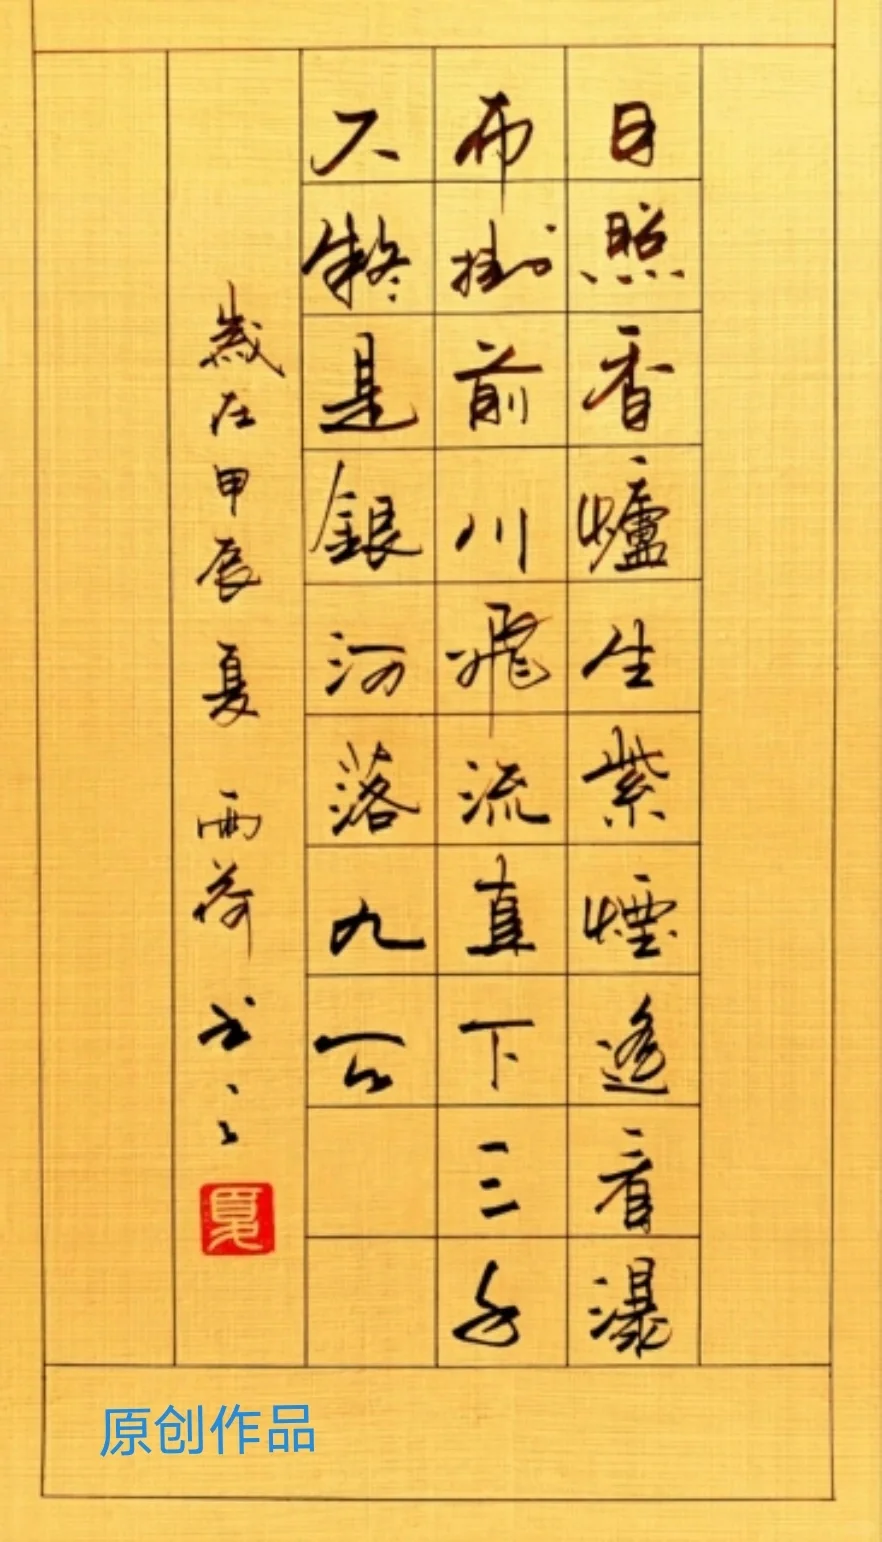 日照香爐生紫煙遙看瀑
布掛前川飛流直下三千
尺疑是銀河落九天
歲在甲辰夏 雨荷 书之
夏
原创作品